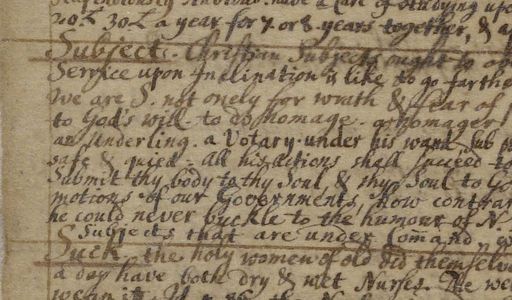 20£ 30£ a year for 7 or 8 years together, &
Subject. Christian Subjects ought to
Service upon Inclination is like to go farthe
We are S. not onely for wrath & fear of
to God's will. to do homage. a homager
an Underling. a Votary. under his ward. sub
safe & quiet. All his actions shall succeed to
Submit thy body to thy Soul, & thy Soul to Go
motions of our Governments, how contrar
he could never buckle to the humour of N.
Subjects that are under Com̄and,
Suck. the holy women of old did themselve
a day have both dry & wet Nurses. The we
wean it.